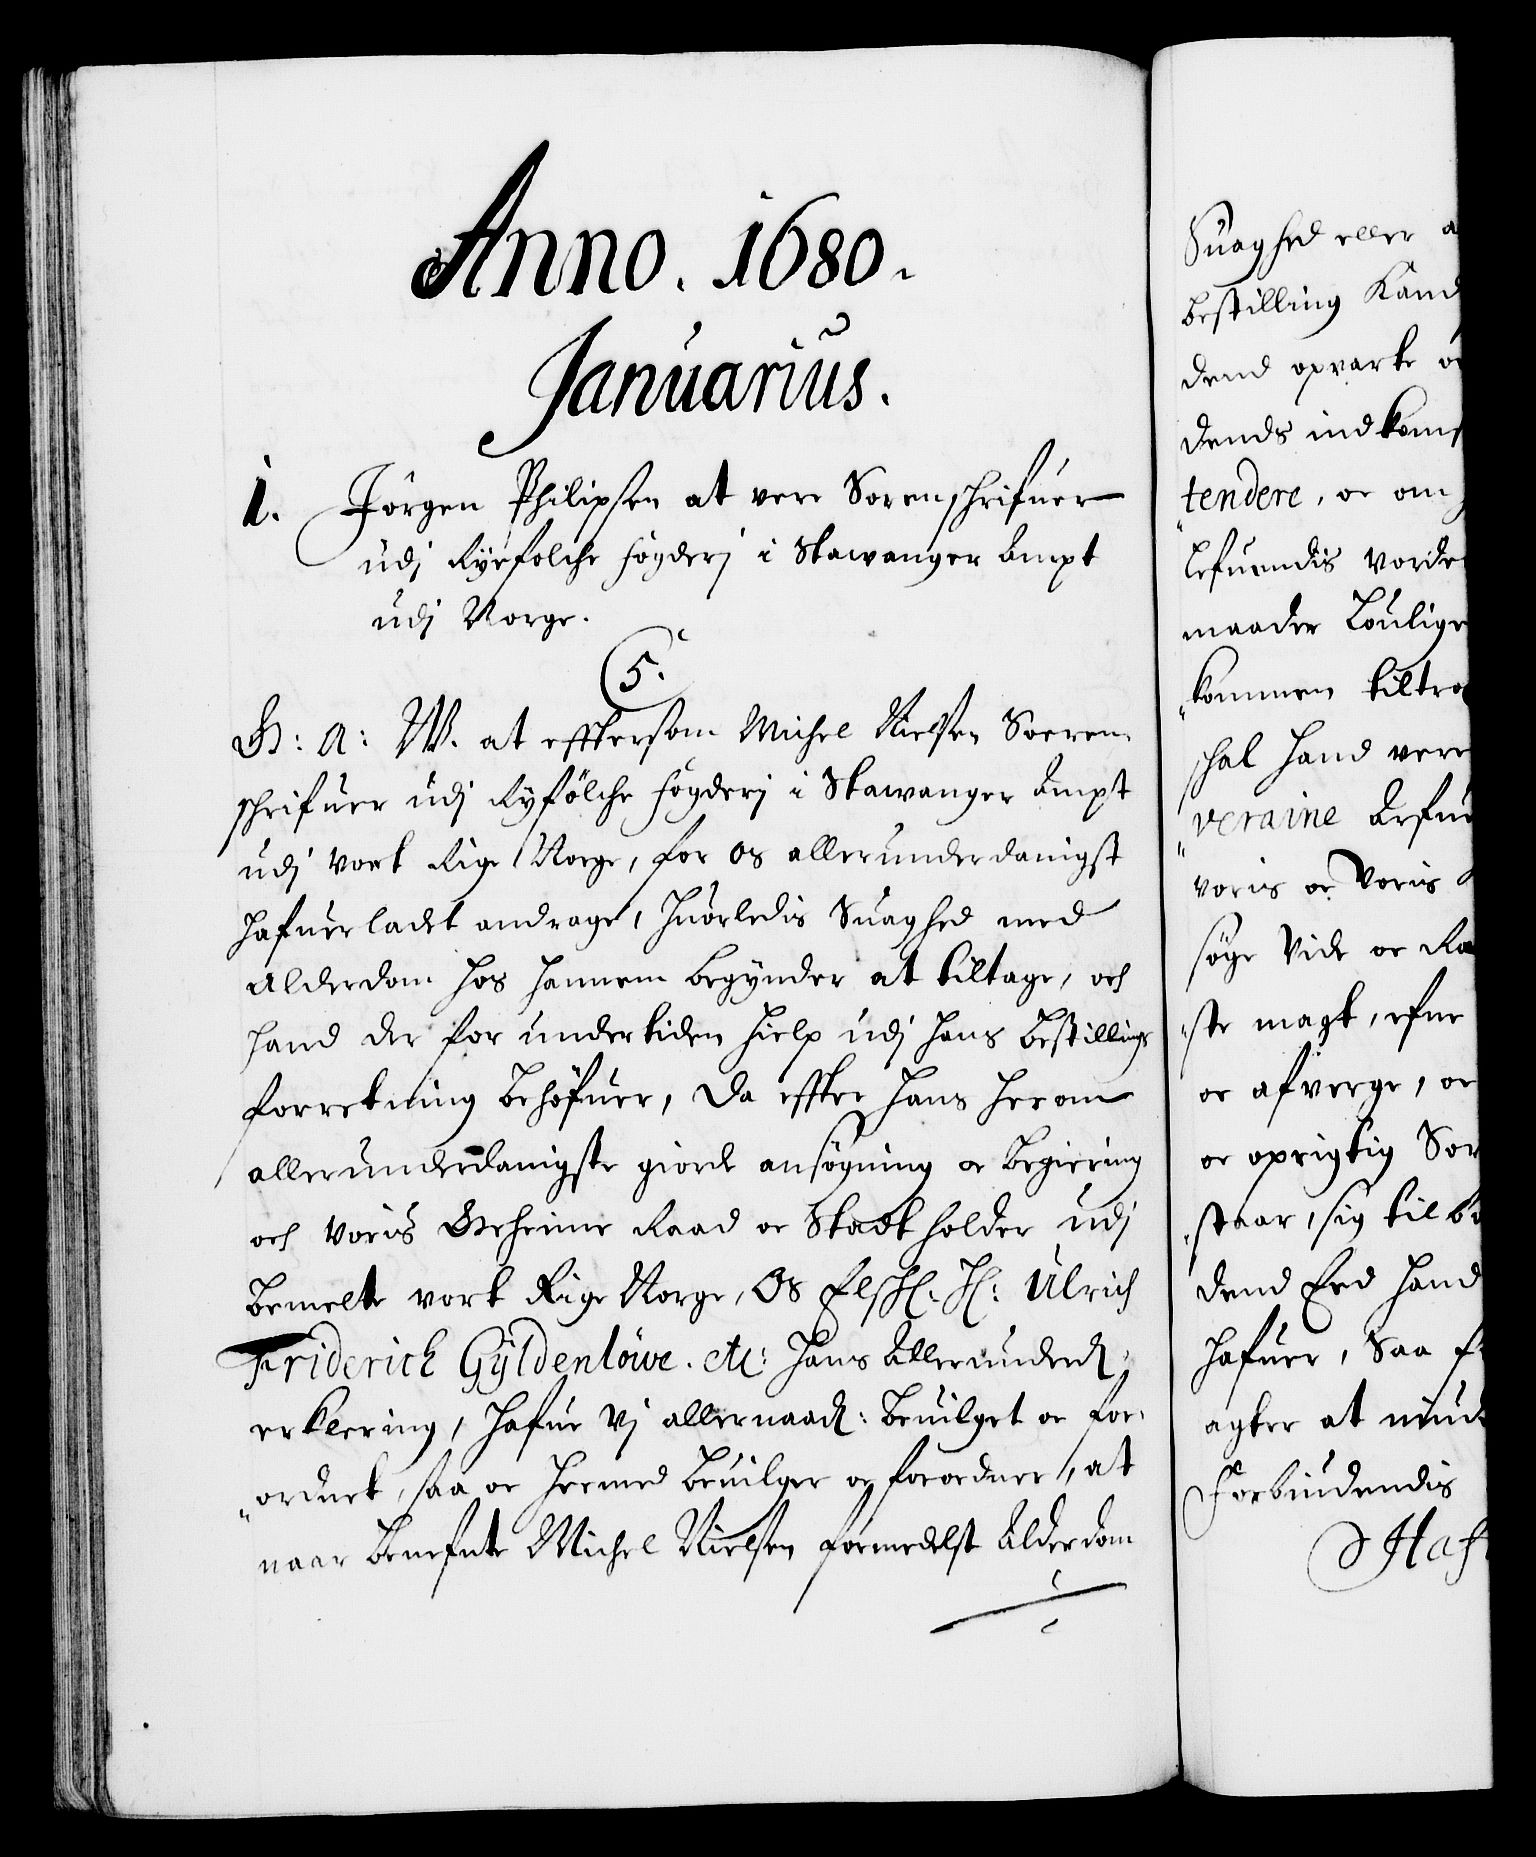 Anno. 1680.
Januarius.
1. Jörgen Philipsen at vere Sorenschrifuer
udj Ryefolche fögderj i Stawanger Ampt
udj Norge.
5.
G: A: W. at efftersom Michel Nielsen Soeren-
schrifuer udj Ryfölche fögderj i Stawanger Ampt
udj vort Rige Norge, for os allerunderdanigst
hafuer ladet andrage, huorledis Suaghed med
Alderdom hos hannem begynder at tiltage, och
hand der for undertiden hielp udj hans bestillings
forretning behöfuer, Da effter hans her om
allerunderdanigste giorde ansögning oc begiering
och voris Geheime Raad oc Stadtholder udj
bemelte vort Rige Norge, Os Elschl. Hl: Ulrich
Friderich Gÿldenlöwe. etc: hans Allerunderd:
erklering, hafue Vj allernaad: beuilget oc for-
ordnet, saa oc hermed beuilger oc forordner, at
naar benefnte Michel Nielsen formedelst Alderdom
Suaghed eller
bestilling Kand
dend opvarte
dends indkomst
tendere, oc om
lefuendis vorde
maader Loulige
kommen tiltre
schal hand vere
veraine Arfue
voris oc Voris
söge Vide oc Ra
ste magt, efne
oc afverge, oc
oc oprigtig Sor
staar, sig til
dend Eed hand
hafuer, Saa
agter at niude
Forbiudendis
Haf